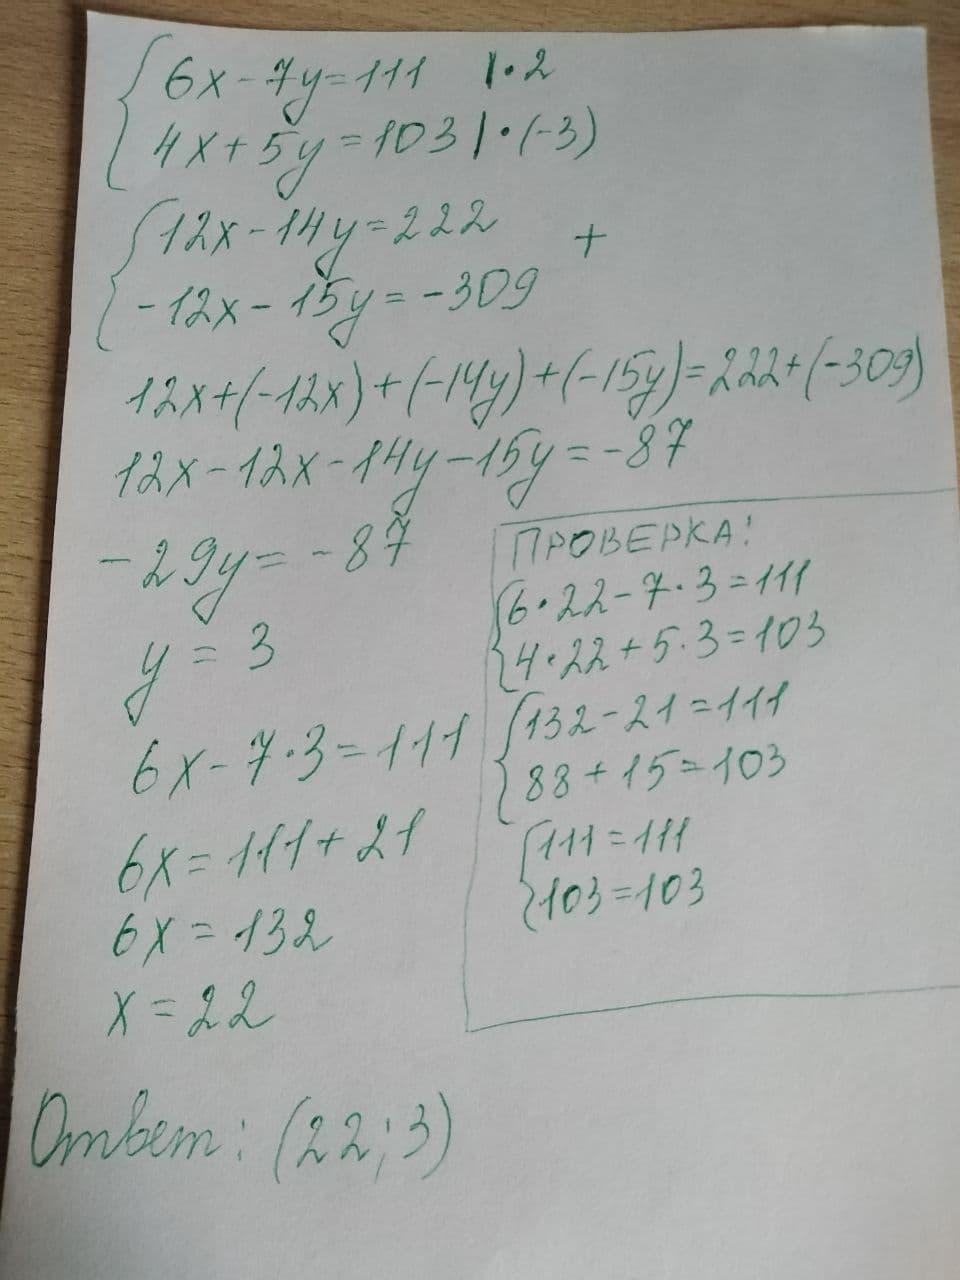 6x - 7y = 111 | · 2
4x + 5y = 103 | · (-3)
12x - 14y = 222 +
-12x - 15y = -309
12x + (-12x) + (-14y) + (-15y) = 222 + (-309)
12x - 12x - 14y - 15y = -87
-29y = -87
y = 3
6x - 7·3 = 111
6x = 111 + 21
6x = 132
x = 22
ПРОВЕРКА!
6·22 - 7·3 = 111
4·22 + 5·3 = 103
132 - 21 = 111
88 + 15 = 103
111 = 111
103 = 103
Ответ: (22; 3)